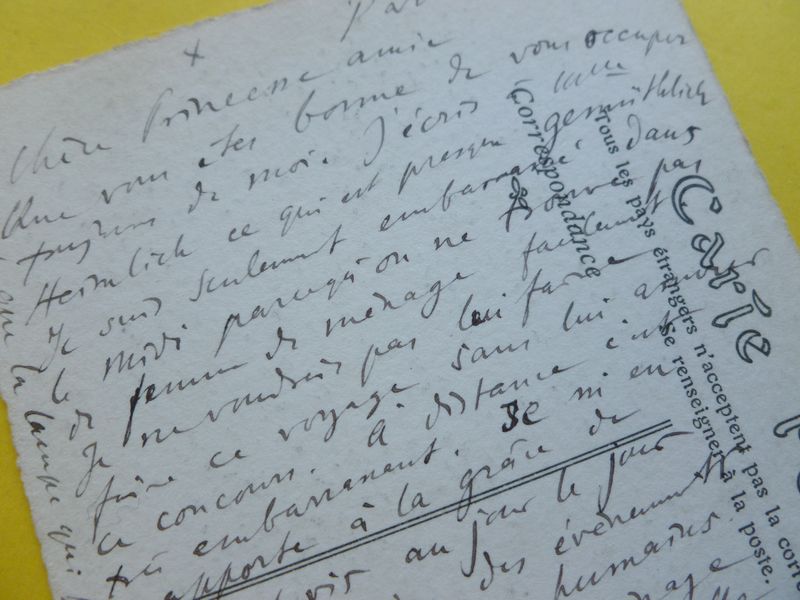 Par
x
Chère Princesse amie
Que vous êtes bonne de vous occuper
toujours de moi. J'écris
Heimlich ce qui est presque gemüthlich
Je suis seulement embarrassé dans
midi parcequ'on ne trouve pas
femme de ménage
Je ne voudrais pas lui faire
faire ce voyage sans lui
ce concours. à distance c'est
très embarrassant. Je m'en
apporte à la grâce de
au jour le jour
des évènements
humains.
que la lampe qui
Correspondance
Carte
Tous les pays étrangers n'acceptent pas la corre
Se renseigner à la poste.